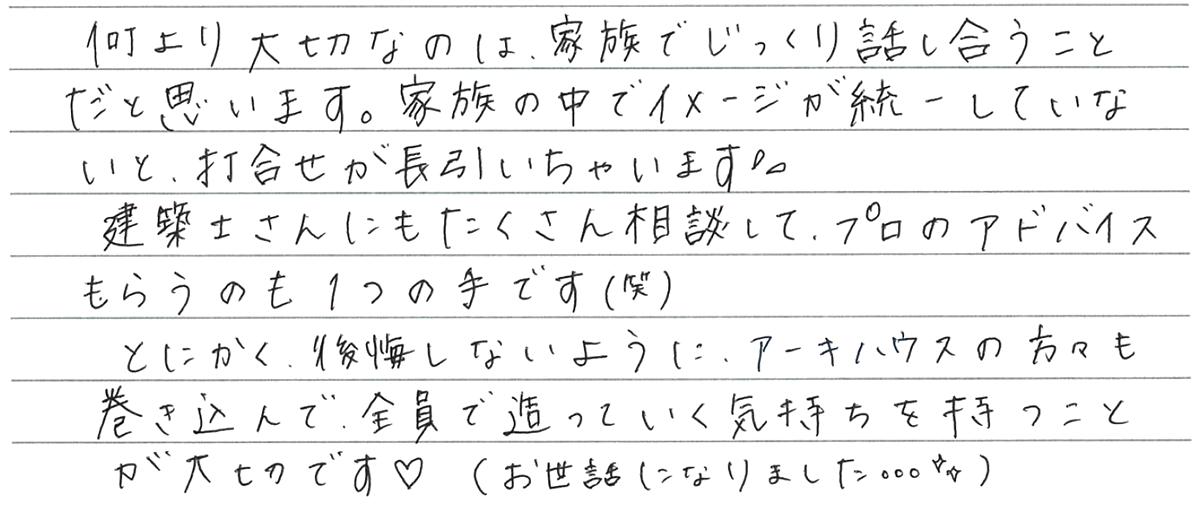 何より大切なのは、家族でじっくり話し合うこと
だと思います。家族の中でイメージが統一していな
いと、打合せが長引いちゃいます
建築士さんにもたくさん相談して、プロのアドバイス
もらうのも1つの手です(笑)
とにかく、後悔しないように、アーキハウスの方々も
巻き込んで、全員で造っていく気持ちを持つこと
が大切です♡ (お世話になりました…)